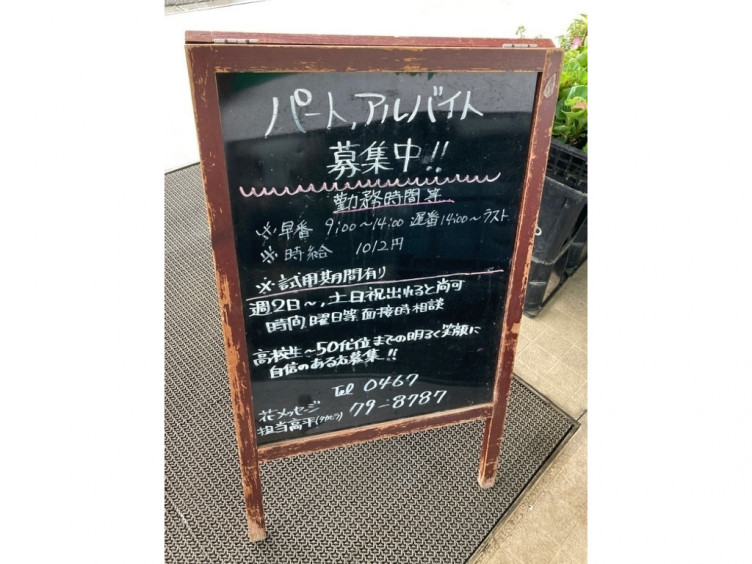 パート,アルバイト
募集中!!
勤務時間等
※早番 9:00〜14:00 遅番14:00〜ラスト
※時給 1012円
※試用期間有り
週2日〜,土日祝出れると尚可
時間,曜日等面接時相談
高校生〜50代位までの明るく笑顔に
自信のある方募集!!
Tel 0467
花メッセージ 79-8787
担当高平(タカヒラ)